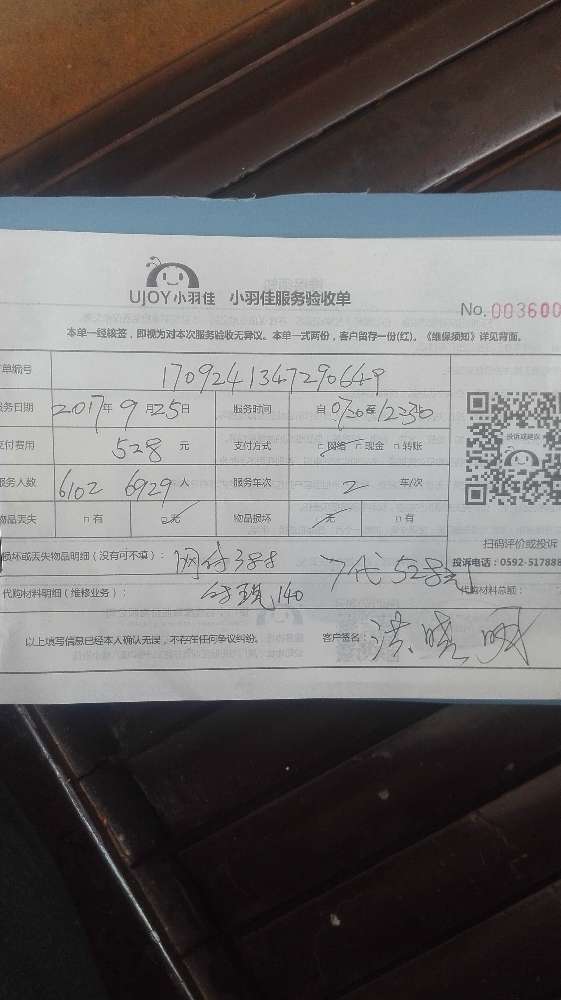 UJOY小羽佳 小羽佳服务验收单
No.003600
本单一经核签，即视为对本次服务验收无异议。本单一式两份，客户留存一份(红)。《维保须知》详见背面。
单编号 1709241347290649
服务日期 2017年9月25日 服务时间 自 至
投诉或建议
支付费用 528 元 支付方式 网络 现金 转账
服务人数 6102 6929 人 服务车次 2 车/次
物品丢失 有 无 物品损坏 无 有
扫码评价或投诉
损坏或丢失物品明细（没有可不填）： 网付388
投诉电话：0592-517888
代购材料明细（维修业务）： 付现140 528元
代购材料总额：
以上填写信息已经本人确认无误，不存在任何争议纠纷。 客户签名：洪晓